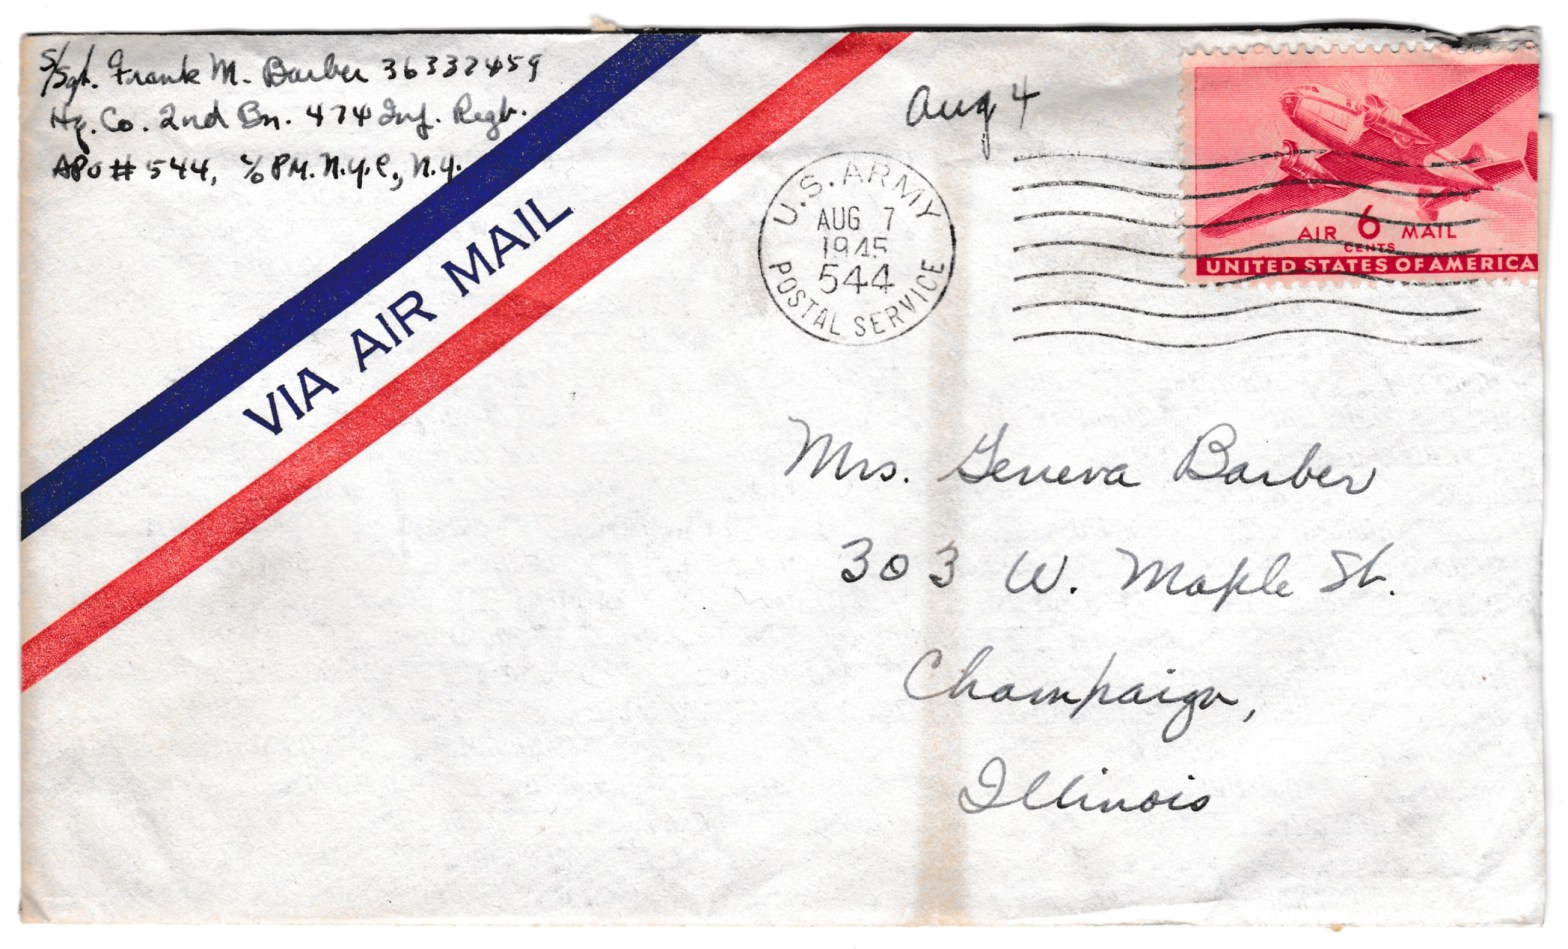 S/Sgt. Frank M. Barber 36337459
Hq. Co. 2nd Bn. 474 Inf. Regt.
APO # 544, c/o PM. N.Y.C., N.Y.
VIA AIR MAIL
Aug 4
U.S. ARMY
AUG 7
1945
544
POSTAL SERVICE
AIR 6 MAIL
CENTS
UNITED STATES OF AMERICA
Mrs. Geneva Barber
303 W. Maple St.
Champaign,
Illinois